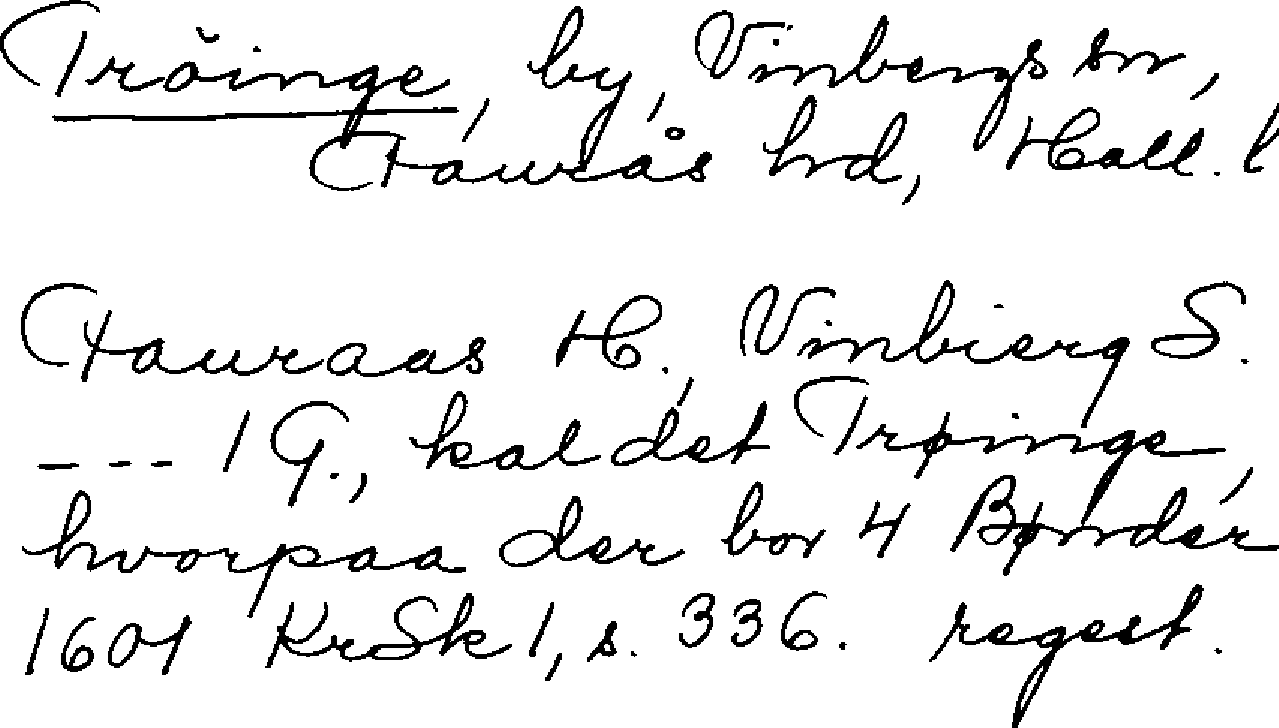 Tröinge, by, Vinbergs sn,
Faurås hrd, Hall. l
Fauraas H., Vinbierg S.
--- 1 G., kaldet Trøinge,
hvorpaa der bor 4 Bønder
1601 KrSk 1, s. 336. regest.